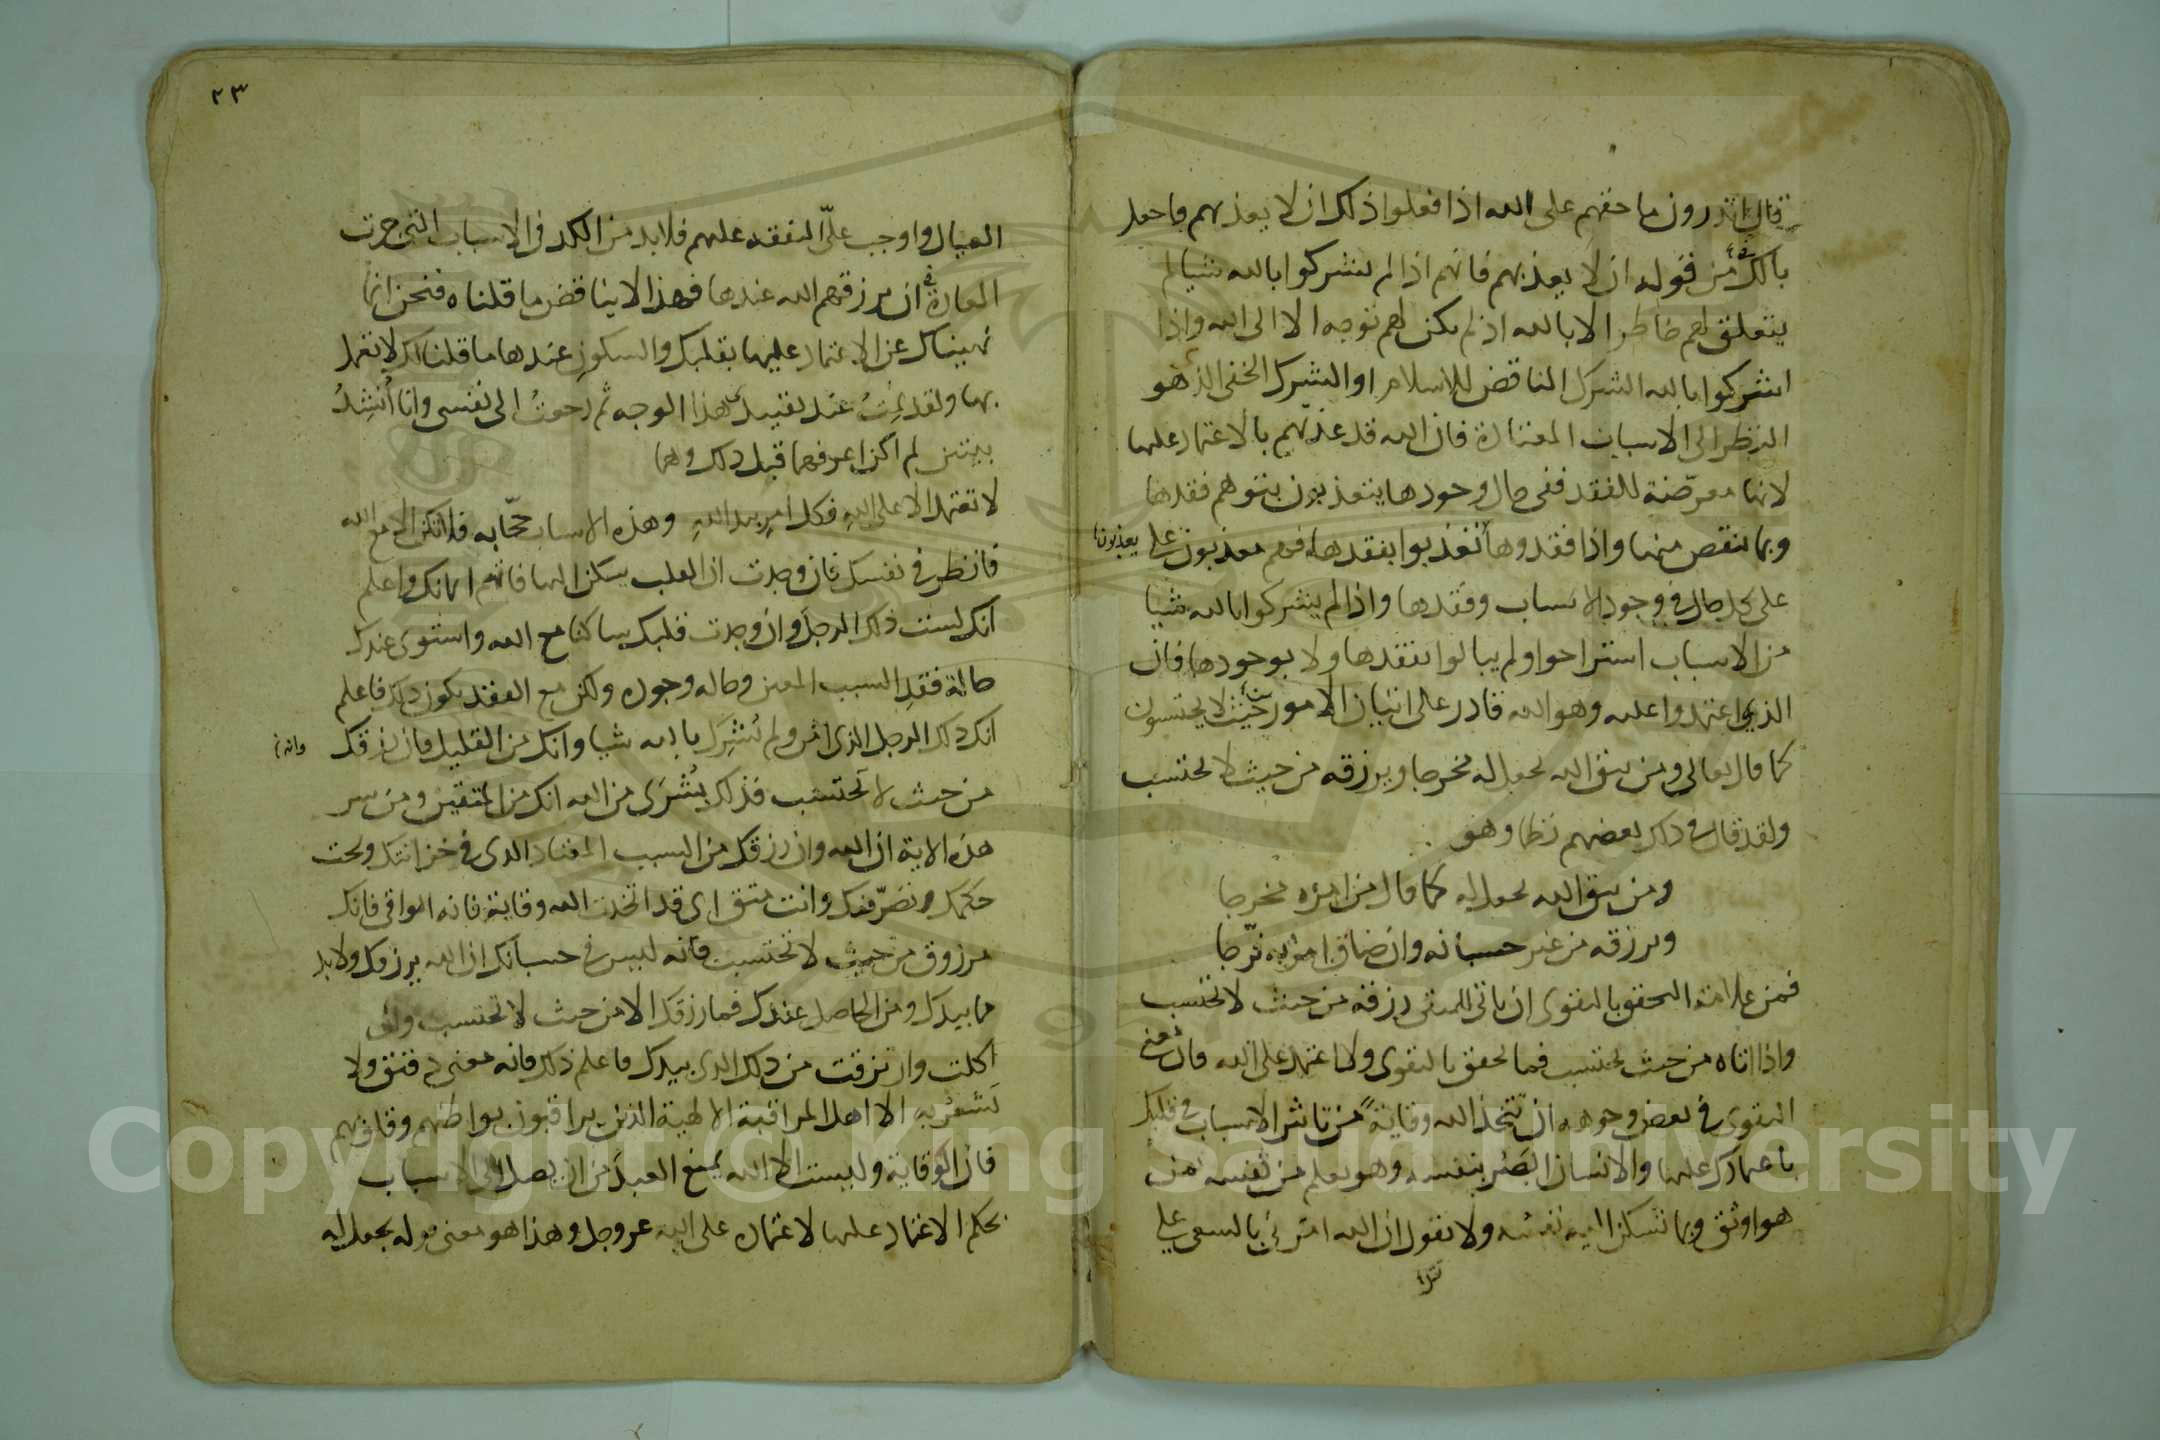 قال اتدرون ما حقهم على الله اذا فعلوا ذلك ان لا يعذبهم فاجعل
بالك في قوله ان لا يعذبهم فانهم اذا لم يشركوا بالله شيا لم
يتعلق لهم خاطر الا بالله اذ لم يكن لهم توجه الا الى الله واذا
اشركوا بالله الشرك الناقض للاسلام او الشرك الخفى الذى هو
النظر الى الاسباب المعتادة فان الله قد عذبهم بالاعتماد عليها
لانها معرضة للفقد ففى حال وجودها يتعذبون بتوهم فقدها
وبما ينقص منها واذا فقدوها تعذبوا بفقدها فهم معذبون على
يعذبون
على كل حال فى وجود الاسباب وفقدها واذا لم يشركوا بالله شيا
من الاسباب استراحوا ولم يبالوا بفقدها ولا بوجودها فان
الذى اعتمدوا عليه وهو الله قادر على اتيان الامور من حيث لا يحتسبون
كما قال تعالى ومن يتق الله يجعل له مخرجا ويرزقه من حيث لا يحتسب
ولقد قال فى ذلك بعضهم نظما وهو
ومن يتق الله يجعل له كما قال من امره مخرجا
ويرزقه من غير حسبانه وان ضاق امر به فرجا
فمن علامة التحقق بالتقوى ان ياتى للمتقى رزقه من حيث لا يحتسب
واذا اتاه من حيث يحتسب فما تحقق بالتقوى ولا اعتمد على الله فان معنى
التقوى فى بعض وجوهه ان تتخذ الله وقاية من تاثير الاسباب فى قلبك
باعتمادك عليها والانسان ابصر بنفسه وهو يعلم من نفسه بمن
هو اوثق وبما تسكن اليه نفسه ولا تقول ان الله امرنى بالسعى على
٢٣
العيال واوجب علىّ النفقه عليهم فلا بد من الكد فى الاسباب التى جرت
العادة ان يرزقهم الله عندها فهذا لا يناقض ما قلناه فنحن انما
نهيناك عن الاعتماد عليها بقلبك والسكون عندها ما قلنا لك لا تعمل
بها ولقد نمت عند تقييدى هذا الوجه ثم رجعت الى نفسى وانا انشد
بيتين لم اكن اعرفهما قبل ذلك وهما
لا تعتمد الا على الله فكل امر بيد الله وهذه الاسباب حجّابه فلا تكن الا مع الله
فانظر فى نفسك فان وجدت ان القلب يسكن اليها فاتهم ايمانك واعلم
انك لست ذلك الرجل وان وجدت قلبك ساكنا مع الله واستوى عندك
حالة فقد السبب المعين وحاله وجوده ولكن مع الفقد يكون ذلك فاعلم
انك ذلك الرجل الذى امن ولم يشرك بالله شيا وانك من القليل فان رزقك
وانه
من حيث لا تحتسب فذلك بشرى من الله انك من المتقين ومن سر
هذه الاية ان الله وان رزقك من السبب المعتاد الذى فى خزانتك وتحت
حكمك وتصرّفك وانت متق اى قد اتخذت الله وقاية فانه الواقى فانك
مرزوق من حيث لا تحتسب فانه ليس فى حسبانك ان الله يرزقك ولا بد
مما بيدك ومن الحاصل عندك فما رزقك الا من حيث لا تحتسب وان
اكلت وارتزقت من ذلك الذى بيدك فاعلم ذلك فانه معنى دقيق ولا
يشعر به الا اهل المراقبة الالهية الذين يراقبون بواطنهم وقلوبهم
فان الوقاية وليست الا الله تمنع العبد من ان يصل الى الاسباب
بحكم الاعتماد عليها لاعتماده على الله عز وجل وهذا هو معنى قوله يجعل له